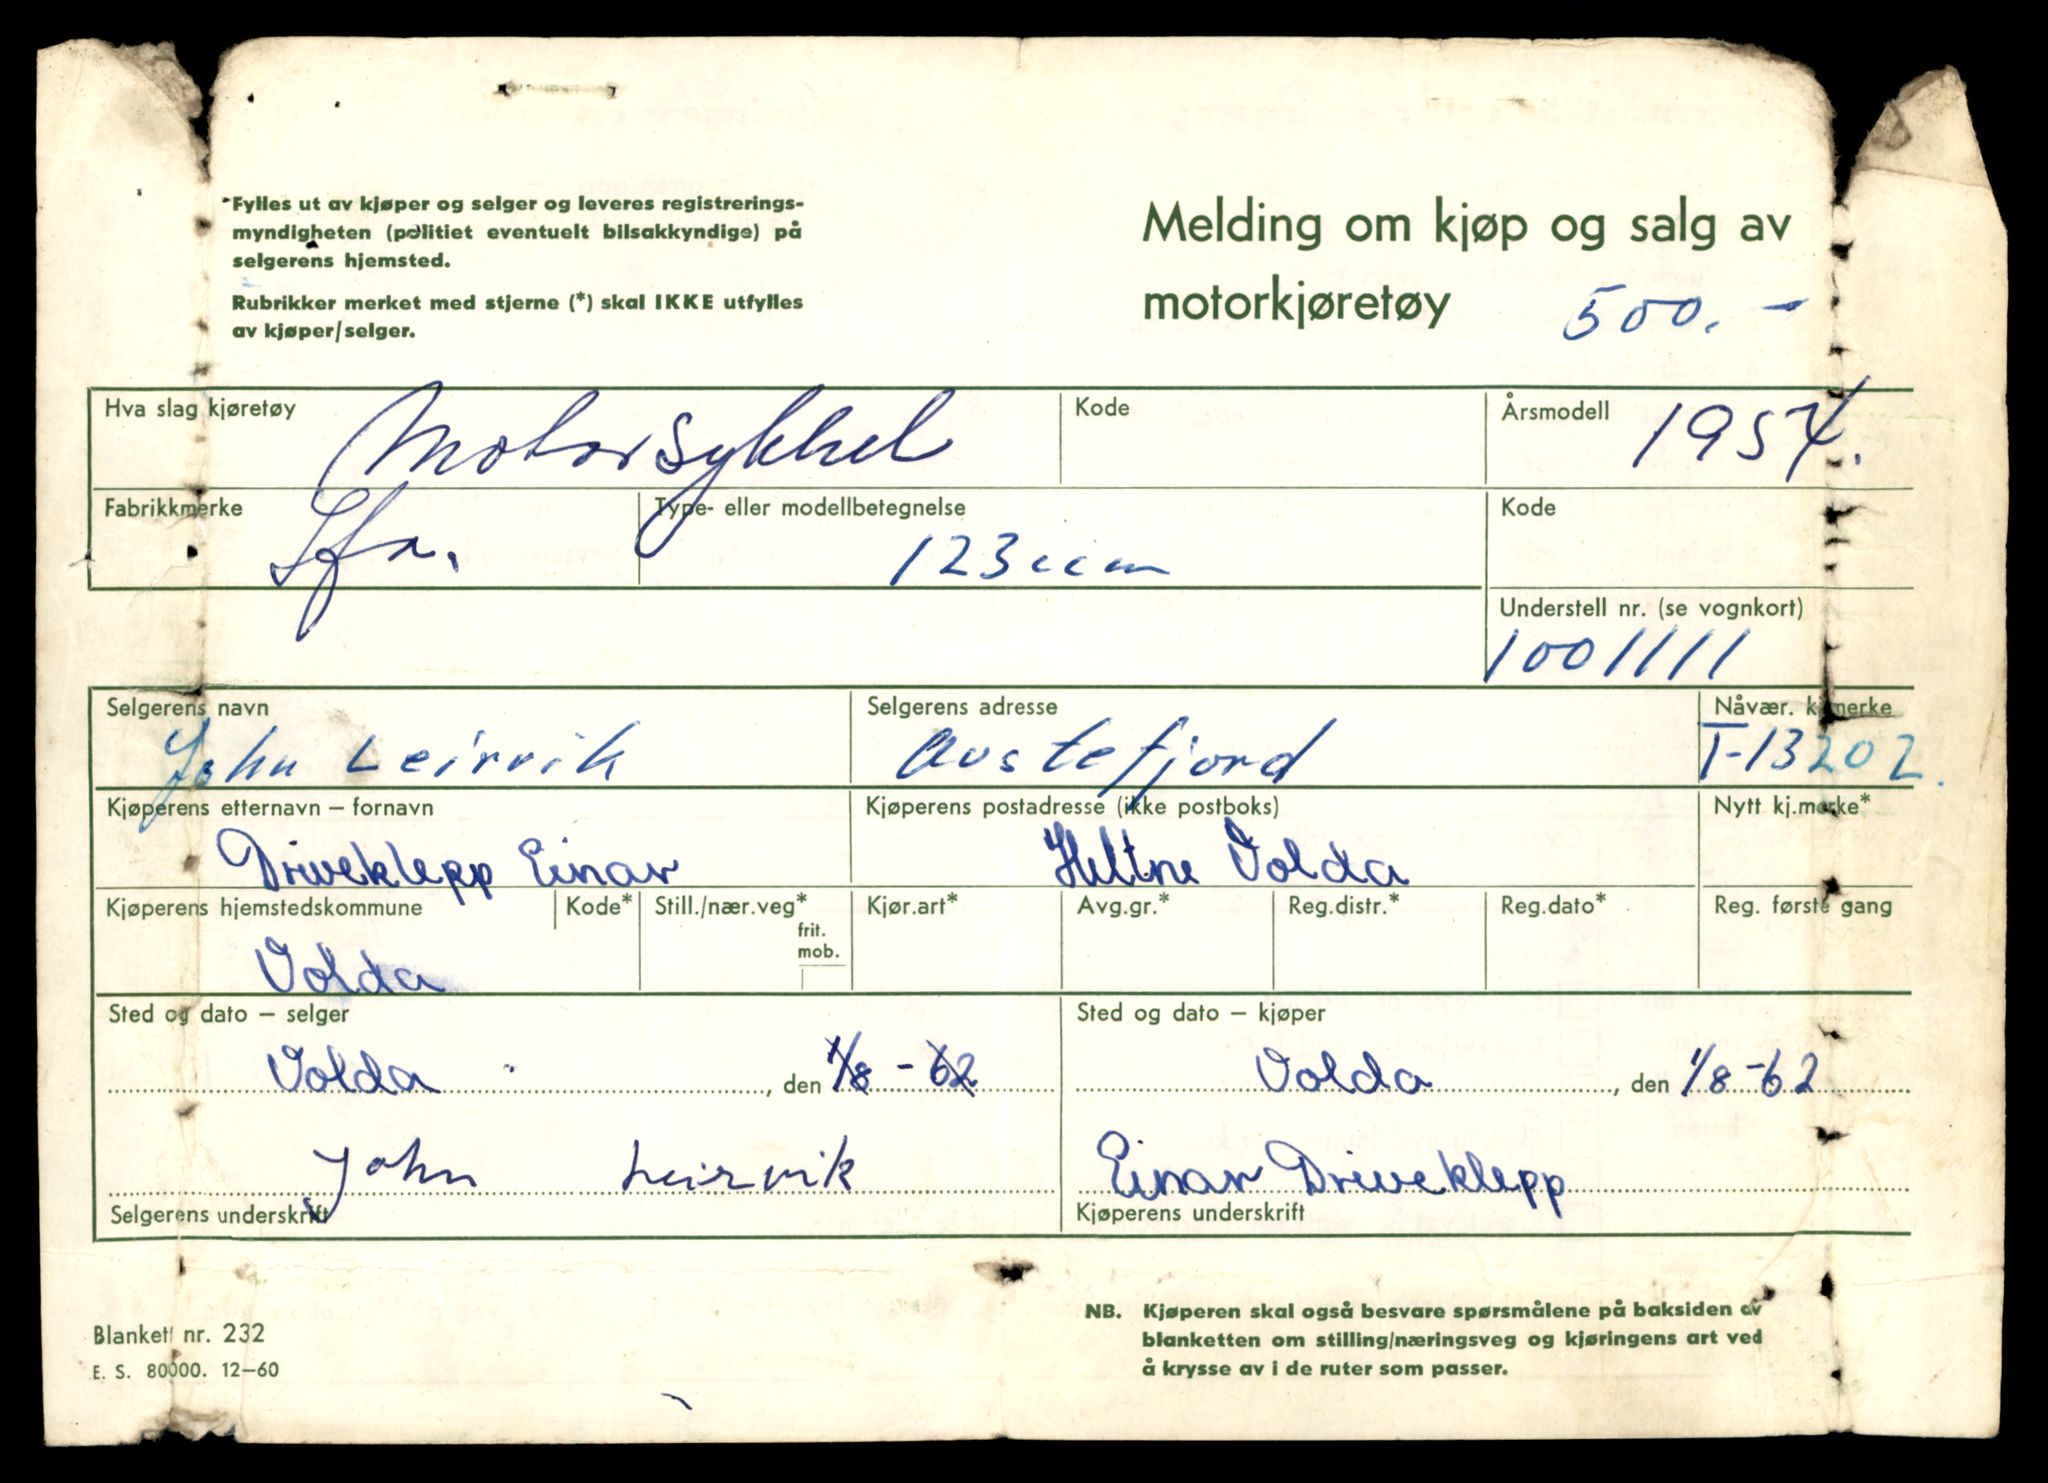 Fylles ut av kjøper og selger og leveres registrerings-
myndigheten (politiet eventuelt bilsakkyndige) på
selgerens hjemsted.
Rubrikker merket med stjerne (*) skal IKKE utfylles
av kjøper/selger.
Melding om kjøp og salg av
motorkjøretøy 500.-
Hva slag kjøretøy Motorsykkel
Kode
Årsmodell 1954.
Fabrikkmerke
Type- eller modellbetegnelse 123 ccm
Kode
Understell nr. (se vognkort)
1001111
Selgerens navn
John Leirvik
Selgerens adresse
Austefjord
Nåvær. kj.merke
T-13202.
Kjøperens etternavn – fornavn
Driveklepp Einar
Kjøperens postadresse (ikke postboks)
Heltne Volda
Nytt kj.merke*
Kjøperens hjemstedskommune
Volda
Kode*
Still./nær.veg*
frit.
mob.
Kjør.art*
Avg.gr.*
Reg.distr.*
Reg.dato*
Reg. første gang
Sted og dato – selger
Volda, den 1/8-62
Sted og dato – kjøper
Volda, den 1/8-62
John Leirvik
Selgerens underskrift
Einar Driveklepp
Kjøperens underskrift
Blankett nr. 232
E. S. 80000. 12–60
NB. Kjøperen skal også besvare spørsmålene på baksiden av
blanketten om stilling/næringsveg og kjøringens art ved
å krysse av i de ruter som passer.